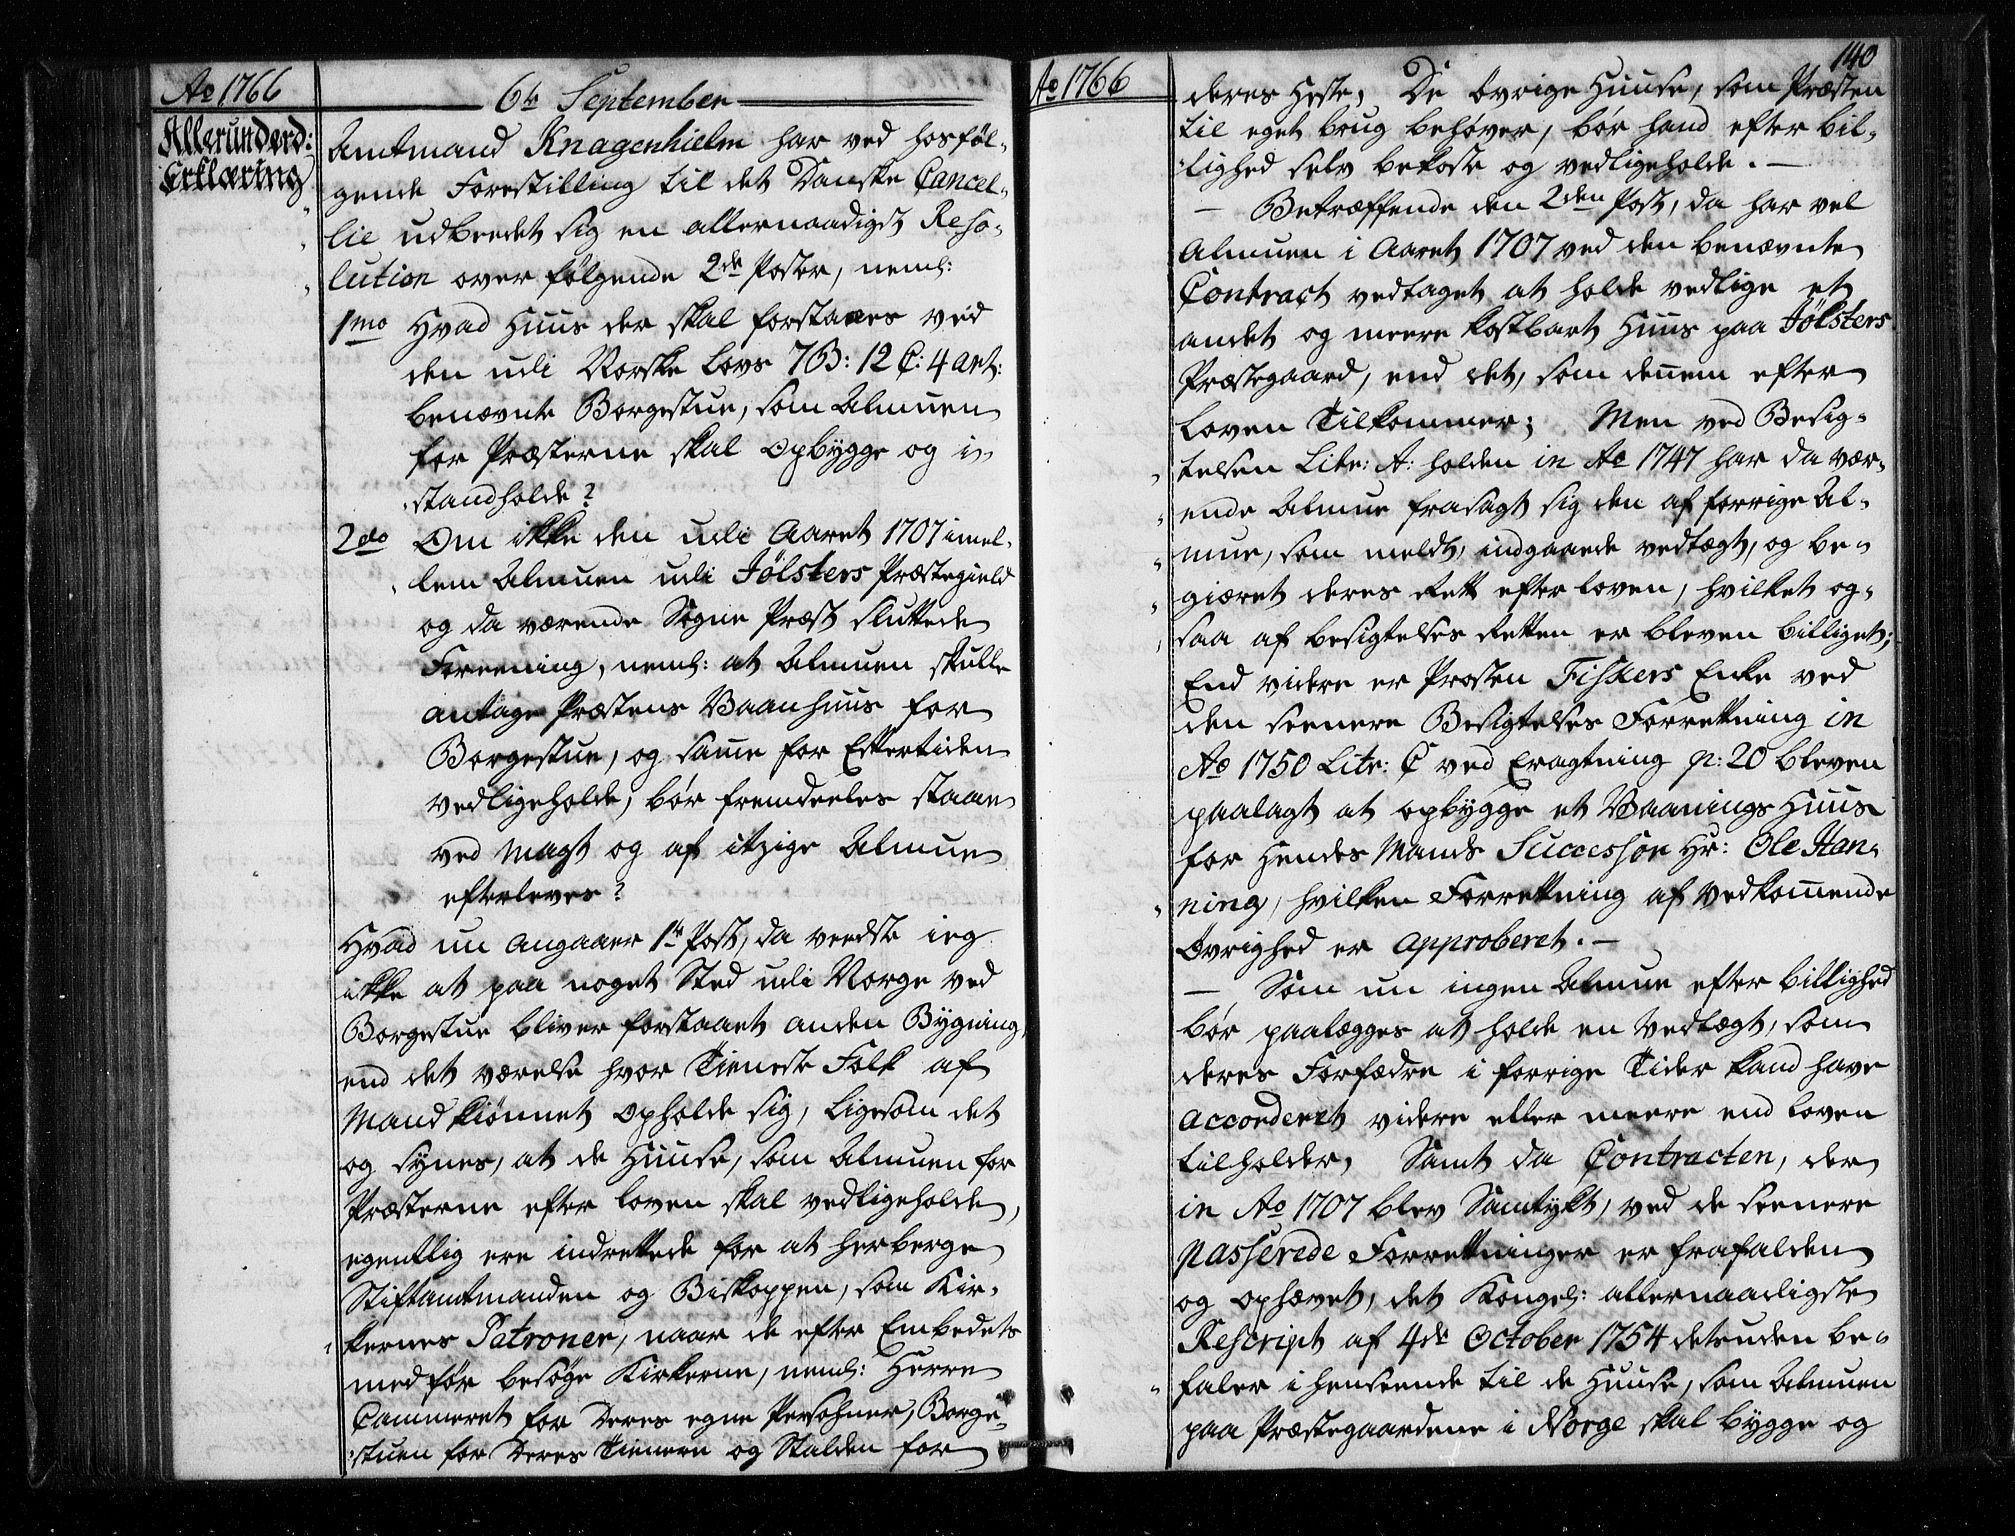 Ao 1766
6te September
Allerunderd:
Erklæring
Amtmand Knagenhielm har ved hosføl-
gende Forestilling til det Danske Cancel-
lie udbeedet sig en allernaadigst Reso-
lution over følgende 2de Poster, neml:
1mo Hvad Huus der skal forstaaes ved
den udi Norske Lovs 7B: 12 C: 4 art:
benævnte Borgestue, som Almuen
for Præsterne skal opbygge og i-
standholde?
2do Om ikke den udi Aaret 1707 imel-
lem Almuen udi Jølsters Præstegield
og da værende Sogne Præst sluttede
Foreening, neml: at Almuen skulle
antage Præstens Vaanhuus for
Borgestue, og samme for Eftertiden
vedligeholde, bør fremdeeles staae
ved magt og af itzige Almue
efterleves?
Hvad nu angaaer 1te Post, da veedste ieg
ikke at paa noget Sted udi Norge ved
Borgestue bliver forstaaet anden Bygning,
end det værelse hvor Tieneste Folk af
Mandkiønnet opholde sig, ligesom det
og synes, at de Huuse, som Almuen for
Præsterne efter loven skal vedligeholde,
egentlig ere indrettede for at herberge
Stiftamtmanden og Biskoppen, som Kir-
kernes Patroner, naar de efter Embedets
medfør besøge Kirkerne, neml: Herre
Cammeret for Deres egne Persohner, Borge-
stuen for Deres Tienere og Stalden for
Ao 1766
140
deres Heste, De øvrige Huuse, som Præsten
til eget brug behøver, bør hand efter bil-
lighed selv bekoste og vedligeholde. —
— Betræffende den 2den Post, da har vel
Almuen i Aaret 1707 ved den benævnte
Contract vedtaget at holde vedlige et
andet og meere kostbart Huus paa Jølsters
Præstegaard, end det, som dennem efter
Loven tilkommer; Men ved Besig-
telsen Litr: A: holden in Ao 1747 har da vær-
ende Almue frasagt sig den af forrige Al-
mue, som meldt, indgaaede vedtægt, og be-
giæret deres Rett efter loven, hvilket og-
saa af besigtelses Retten er bleven billiget;
End videre er Prosten Fiskers Enke ved
den seenere Besigtelses Forretning in
Ao 1750 Litr: C ved Eragtning p: 20 bleven
paalagt at opbygge et Vaanings Huus
for Hendes Mands Successor Hr: Ole Han-
ning, hvilken Forretning af vedkommende
Øvrighed er approberet. —
— Som nu ingen Almue efter billighed
bør paalægges at holde en vedtægt, som
deres Forfædre i forrige Tider kand have
accorderet videre eller meere end loven
tilholder, Samt da Contracten, der
in Ao 1707 blev Samtykt, ved de seenere
passerede Forretninger er frafalden
og ophævet, det Kongel: allernaadigste
Rescript af 4de October 1754 desuden be-
faler i henseende til de Huuse, som Almuen
paa Præstegaardene i Norge skal bygge og